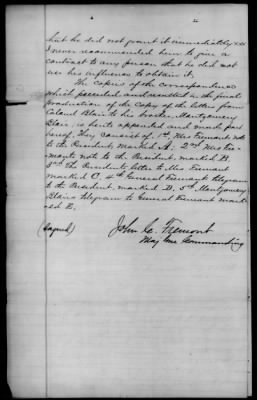 that he did not grant it immediately and
I never recommended him to give a
contract to any person that he did not
use his influence to obtain it.
The copies of the correspondence
which preceded and resulted in the final
production of the copy of the letter from
Colonel Blair to his brother, Montgomery
Blair is hereto appended and made part
hereof. They consist of 1st Mrs Fremont note
to the President, marked A; 2nd Mrs Fre-
monts note to the President, marked B.
3rd The Presidents letter to Mrs Fremont
marked C. 4th General Fremonts telegram
to the President, marked D. 5th Montgomery
Blairs telegram to General Fremont mark-
ed E.
(signed) John C. Fremont
Maj Genl Commanding